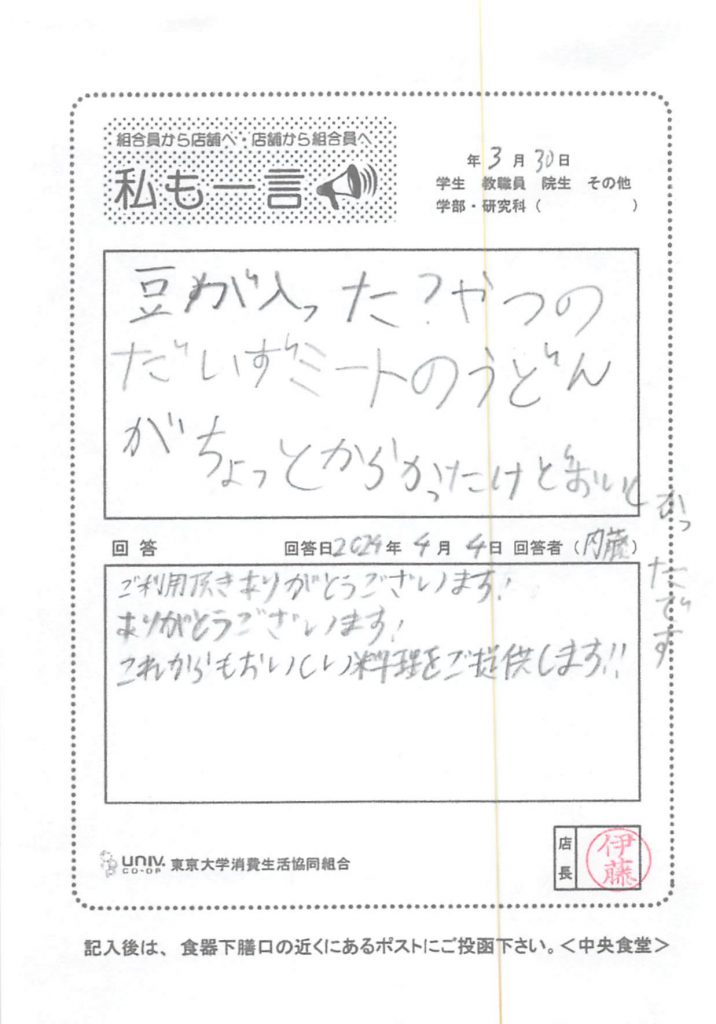 組合員から店舗へ・店舗から組合員へ
私も一言
年3月30日
学生 教職員 院生 その他
学部・研究科( )
豆が入った?やつの
だいずミートのうどん
がちょっとからかったけどおいし
かっ
たです
回答 回答日2024年4月4日 回答者(内藤)
ご利用頂きありがとうございます!
ありがとうございます!
これからもおいしい料理をご提供します!!
UNIV. CO-OP 東京大学消費生活協同組合
店長 伊藤
記入後は、食器下膳口の近くにあるポストにご投函下さい。<中央食堂>